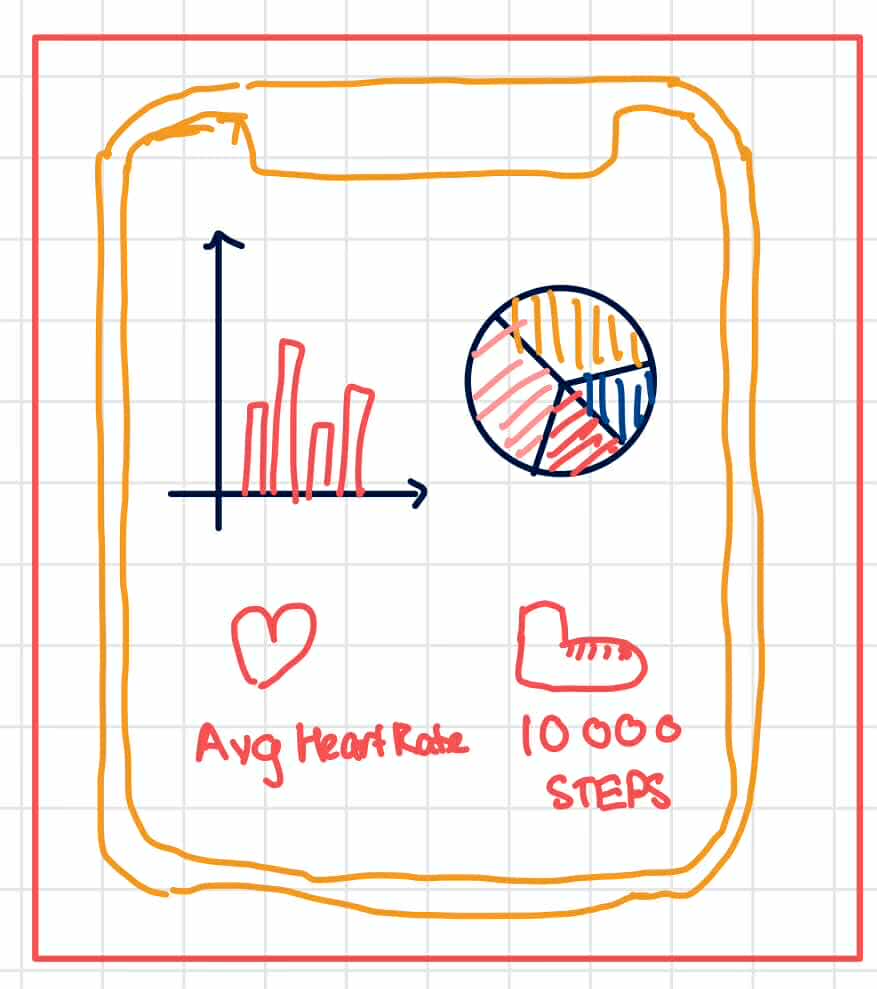 Avg Heart Rate
10 000
STEPS